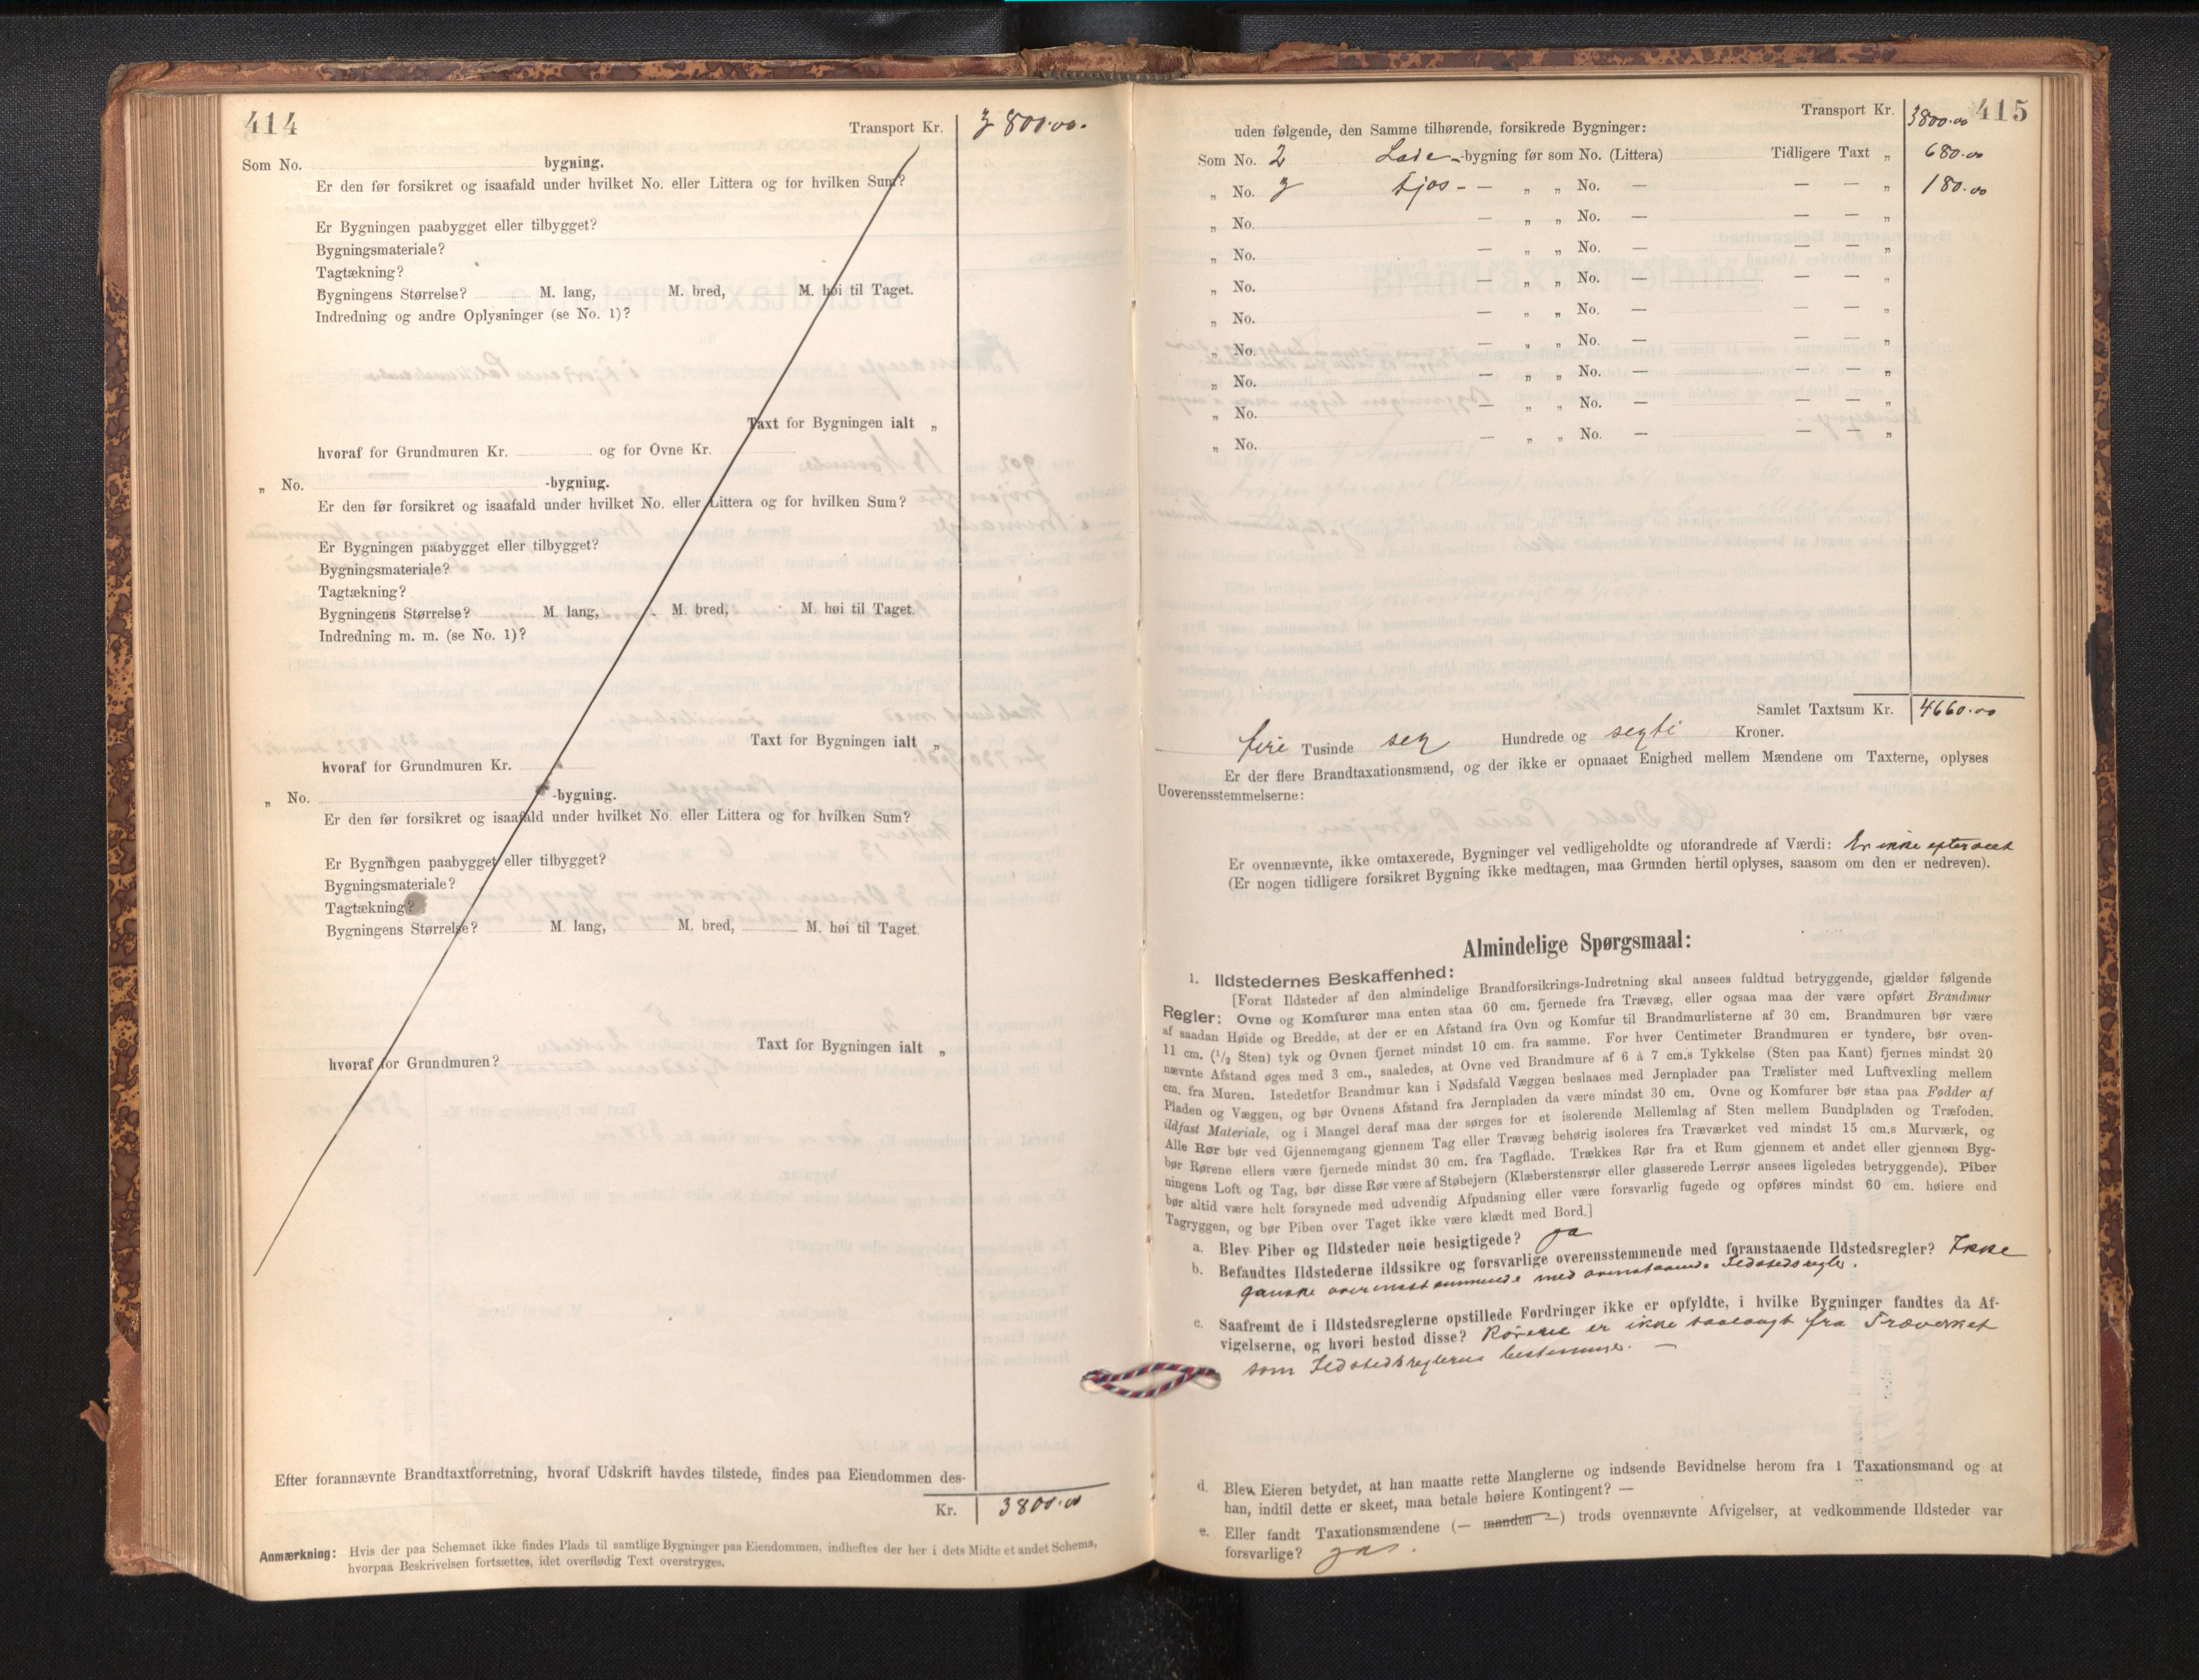 414
Transport Kr. 3800.00.
Som No. bygning.
Er den før forsikret og isaafald under hvilket No. eller Littera og for hvilken Sum?
Er Bygningen paabygget eller tilbygget?
Bygningsmateriale?
Tagtækning?
Bygningens Størrelse? M. lang, M. bred, M. høi til Taget.
Indredning og andre Oplysninger (se No. 1)?
Taxt for Bygningen ialt „
hvoraf for Grundmuren Kr. og for Ovne Kr.
„ No. -bygning.
Er den før forsikret og isaafald under hvilket No. eller Littera og for hvilken Sum?
Er Bygningen paabygget eller tilbygget?
Bygningsmateriale?
Tagtækning?
Bygningens Størrelse? M. lang, M. bred, M. høi til Taget.
Indredning m. m. (se No. 1)?
Taxt for Bygningen ialt „
hvoraf for Grundmuren Kr.
„ No. -bygning.
Er den før forsikret og isaafald under hvilket No. eller Littera og for hvilken Sum?
Er Bygningen paabygget eller tilbygget?
Bygningsmateriale?
Tagtækning?
Bygningens Størrelse? M. lang, M. bred, M. høi til Taget.
Taxt for Bygningen ialt „
hvoraf for Grundmuren?
Efter forannævnte Brandtaxtforretning, hvoraf Udskrift havdes tilstede, findes paa Eiendommen des-
Kr. 3800.00
Anmærkning: Hvis der paa Schemaet ikke findes Plads til samtlige Bygninger paa Eiendommen, indheftes der her i dets Midte et andet Schema,
hvorpaa Beskrivelsen fortsættes, idet overflødig Text overstryges.
415
Transport Kr. 3800.00
uden følgende, den Samme tilhørende, forsikrede Bygninger:
Som No. 2 Lade-bygning før som No. (Littera) Tidligere Taxt „ 680.00
„ No. 3 Fjos- — „ „ No. — — — „ 180.00
„ No. — „ „ No. — — — „
„ No. — „ „ No. — — — „
„ No. — „ „ No. — — — „
„ No. — „ „ No. — — — „
„ No. — „ „ No. — — — „
„ No. — „ „ No. — — — „
„ No. — „ „ No. — — — „
„ No. — „ „ No. — — — „
Samlet Taxtsum Kr. 4660.00
fire Tusinde sex Hundrede og sexti Kroner.
Er der flere Brandtaxationsmænd, og der ikke er opnaaet Enighed mellem Mændene om Taxterne, oplyses
Uoverensstemmelserne:
Er ovennævnte, ikke omtaxerede, Bygninger vel vedligeholdte og uforandrede af Værdi: Er ikke efterseet
(Er nogen tidligere forsikret Bygning ikke medtagen, maa Grunden hertil oplyses, saasom om den er nedreven).
Almindelige Spørgsmaal:
1. Ildstedernes Beskaffenhed:
[Forat Ildsteder af den almindelige Brandforsikrings-Indretning skal ansees fuldtud betryggende, gjælder følgende
Regler: Ovne og Komfurer maa enten staa 60 cm. fjernede fra Trævæg, eller ogsaa maa der være opført Brandmur
af saadan Høide og Bredde, at der er en Afstand fra Ovn og Komfur til Brandmurlisterne af 30 cm. Brandmuren bør være
11 cm. (1/2 Sten) tyk og Ovnen fjernet mindst 10 cm. fra samme. For hver Centimeter Brandmuren er tyndere, bør oven-
nævnte Afstand øges med 3 cm., saaledes, at Ovne ved Brandmure af 6 à 7 cm.s Tykkelse (Sten paa Kant) fjernes mindst 20
cm. fra Muren. Istedetfor Brandmur kan i Nødsfald Væggen beslaaes med Jernplader paa Trælister med Luftvexling mellem
Pladen og Væggen, og bør Ovnens Afstand fra Jernpladen da være mindst 30 cm. Ovne og Komfurer bør staa paa Fødder af
ildfast Materiale, og i Mangel deraf maa der sørges for et isolerende Mellemlag af Sten mellem Bundpladen og Træfoden.
Alle Rør bør ved Gjennemgang gjennem Tag eller Trævæg behørig isoleres fra Træværket ved mindst 15 cm.s Murværk, og
bør Rørene ellers være fjernede mindst 30 cm. fra Tagflade. Trækkes Rør fra et Rum gjennem et andet eller gjennem Byg-
ningens Loft og Tag, bør disse Rør være af Støbejern (Klæberstensrør eller glasserede Lerrør ansees ligeledes betryggende). Piber
bør altid være helt forsynede med udvendig Afpudsning eller være forsvarlig fugede og opføres mindst 60 cm. høiere end
Tagryggen, og bør Piben over Taget ikke være klædt med Bord.]
a. Blev Piber og Ildsteder nøie besigtigede? ja
b. Befandtes Ildstederne ildssikre og forsvarlige overensstemmende med foranstaaende Ildstedsregler? Ikke
ganske overensstemmende med ovenstaaende Ildstedsregler.
c. Saafremt de i Ildstedsreglerne opstillede Fordringer ikke er opfyldte, i hvilke Bygninger fandtes da Af-
vigelserne, og hvori bestod disse? Rørene er ikke saalangt fra Træverket
som Ildstedsreglerne bestemmer. —
d. Blev Eieren betydet, at han maatte rette Manglerne og indsende Bevidnelse herom fra 1 Taxationsmand og at
han, indtil dette er skeet, maa betale høiere Kontingent? —
e. Eller fandt Taxationsmændene (— manden —) trods ovennævnte Afvigelser, at vedkommende Ildsteder var
forsvarlige? ja.